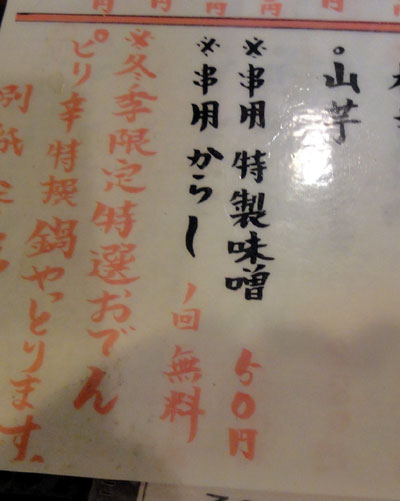 。山芋
※串用 特製味噌 50円
※串用 からし 1回無料
※冬季限定特選おでん
ピリ辛特撰鍋やっとります。
別紙